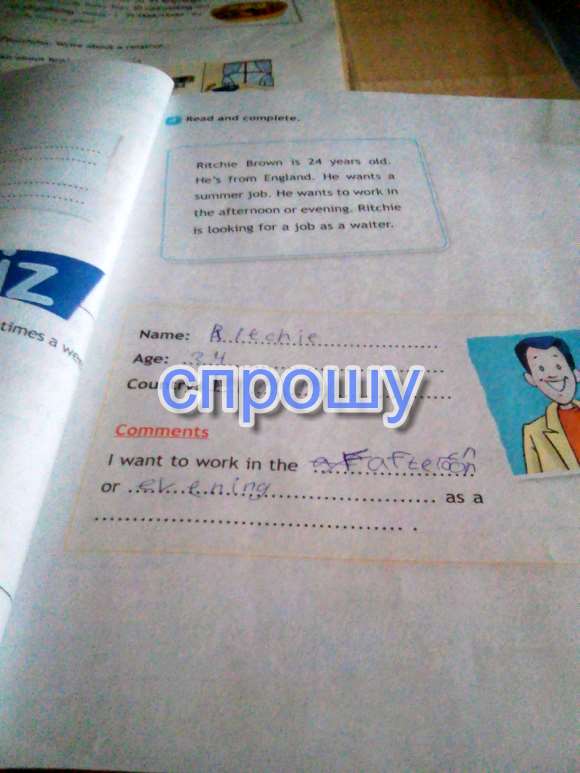 Read and complete.
Ritchie Brown is 24 years old.
He's from England. He wants a
summer job. He wants to work in
the afternoon or evening. Ritchie
is looking for a job as a waiter.
iz
times a we
Name: Ritchie
Age: 34
спрошу
Comments
I want to work in the afteroon
or evening as a